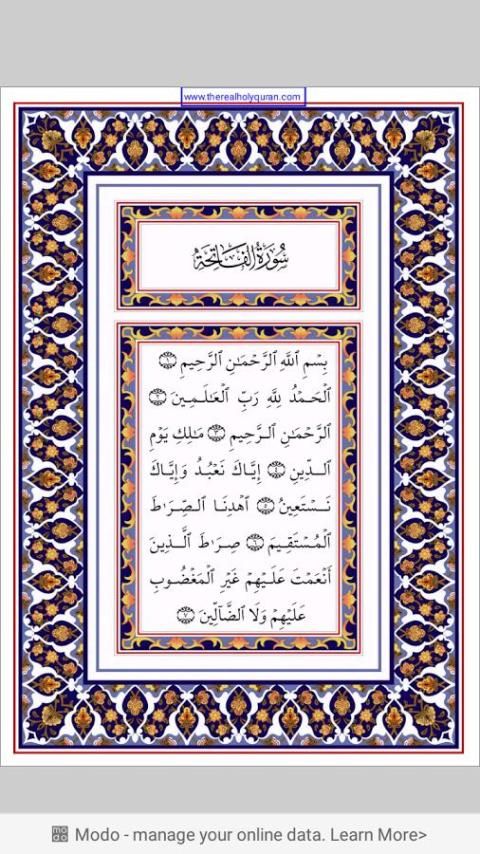 www.therealholyquran.com
سُورَةُ الفَاتِحَةِ
بِسْمِ ٱللَّهِ ٱلرَّحْمَٰنِ ٱلرَّحِيمِ ١
ٱلْحَمْدُ لِلَّهِ رَبِّ ٱلْعَٰلَمِينَ ٢
ٱلرَّحْمَٰنِ ٱلرَّحِيمِ ٣ مَٰلِكِ يَوْمِ
ٱلدِّينِ ٤ إِيَّاكَ نَعْبُدُ وَإِيَّاكَ
نَسْتَعِينُ ٥ ٱهْدِنَا ٱلصِّرَٰطَ
ٱلْمُسْتَقِيمَ ٦ صِرَٰطَ ٱلَّذِينَ
أَنْعَمْتَ عَلَيْهِمْ غَيْرِ ٱلْمَغْضُوبِ
عَلَيْهِمْ وَلَا ٱلضَّآلِّينَ ٧
modo Modo - manage your online data. Learn More>